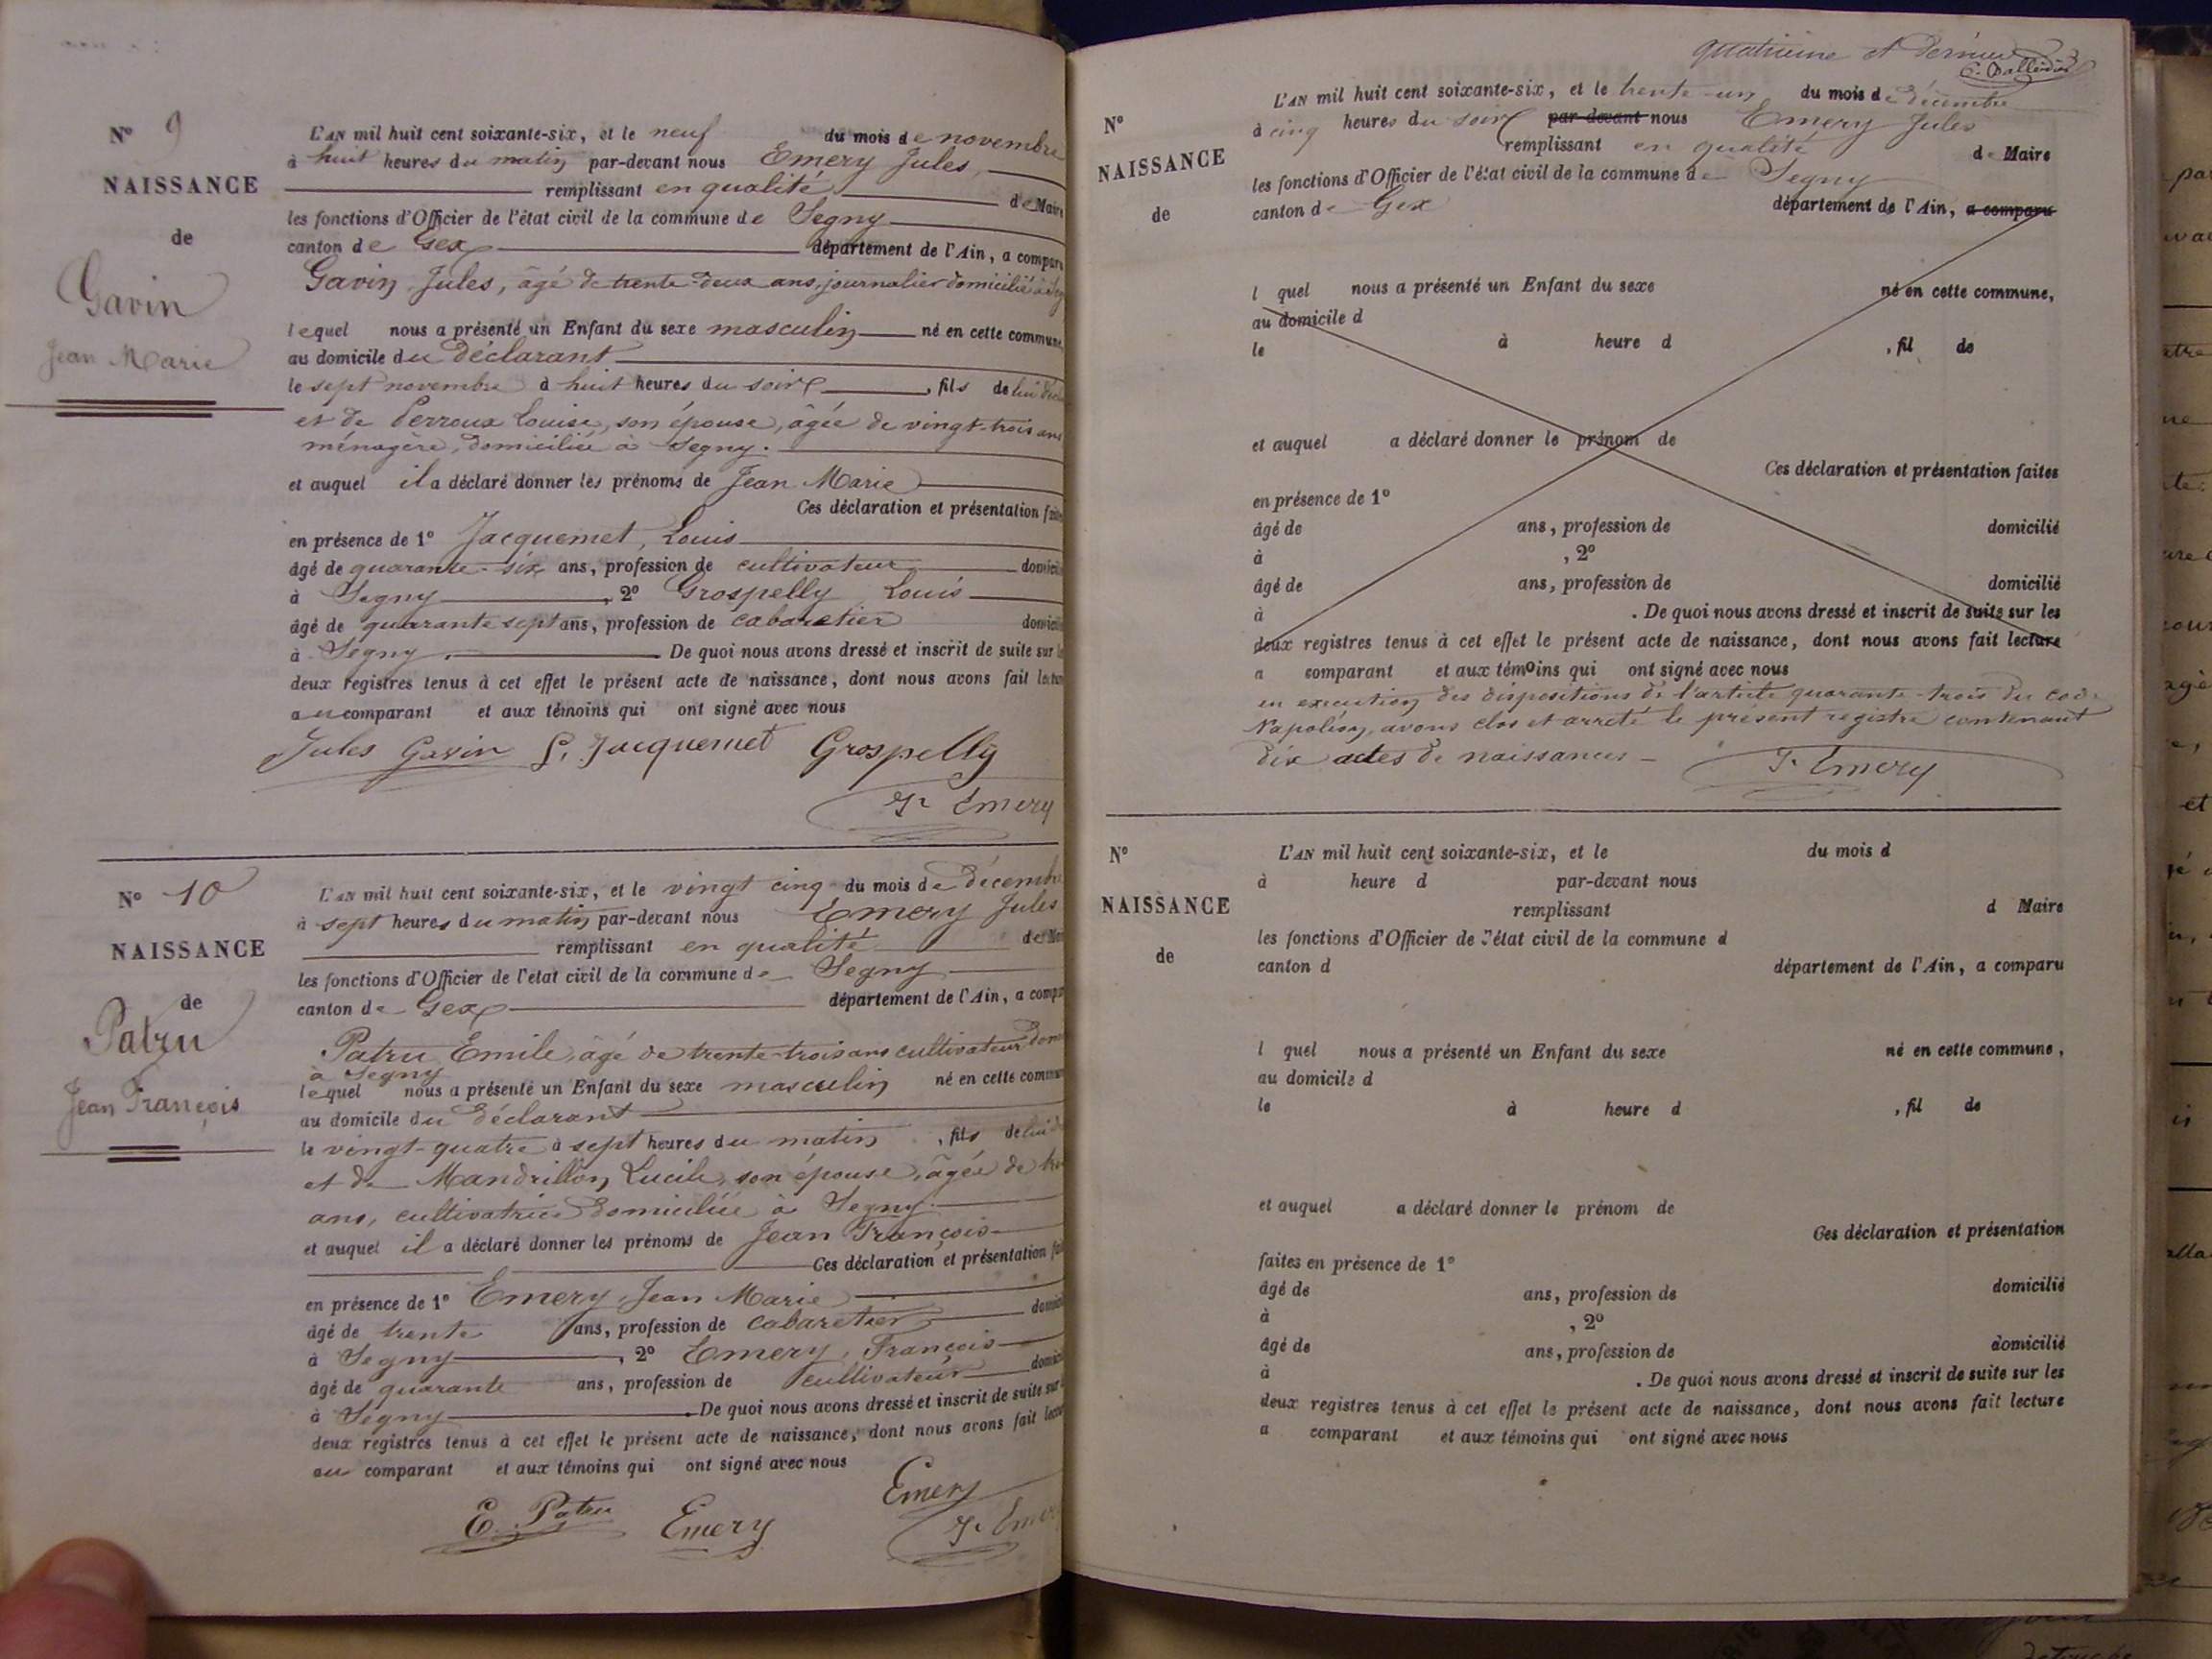 N° 9
NAISSANCE
de
Gavin
Jean Marie
L'AN mil huit cent soixante-six, et le neuf du mois de novembre
à huit heures du matin par-devant nous Emery Jules,
remplissant en qualité de Maire
les fonctions d'Officier de l'état civil de la commune de Segny
canton de Gex département de l'Ain, a comparu
Gavin Jules, âgé de trente-deux ans, journalier domicilié à
lequel nous a présenté un Enfant du sexe masculin né en cette commune,
au domicile du déclarant
le sept novembre à huit heures du soir, fils de lui
et de Perroux Louise, son épouse, âgée de vingt-trois ans
ménagère, domiciliée à Segny.
et auquel il a déclaré donner les prénoms de Jean Marie
Ces déclaration et présentation
en présence de 1° Jacquemet, Louis
âgé de quarante-six ans, profession de cultivateur
à Segny, 2° Grospelly Louis
âgé de quarante sept ans, profession de cabaretier
à Segny. De quoi nous avons dressé et inscrit de suite sur
deux registres tenus à cet effet le présent acte de naissance, dont nous avons fait
au comparant et aux témoins qui ont signé avec nous
Jules Gavin L. Jacquemet Grospelly
J. Emery
N° 10
NAISSANCE
de
Patru
Jean François
L'AN mil huit cent soixante-six, et le vingt cinq du mois de décembre
à sept heures du matin par-devant nous Emery Jules
remplissant en qualité de
les fonctions d'Officier de l'état civil de la commune de Segny
canton de Gex département de l'Ain, a
Patru Emile, âgé de trente-trois ans cultivateur
à Segny
lequel nous a présenté un Enfant du sexe masculin né en cette
au domicile du déclarant
le vingt-quatre à sept heures du matin, fils de lui
et de Mandrillon Lucile, son épouse, âgée de
ans, cultivatrice domiciliée à Segny.
et auquel il a déclaré donner les prénoms de Jean François
Ces déclaration et présentation
en présence de 1° Emery, Jean Marie
âgé de trente ans, profession de cabaretier
à Segny, 2° Emery, François
âgé de quarante ans, profession de cultivateur
à Segny. De quoi nous avons dressé et inscrit de suite sur
deux registres tenus à cet effet le présent acte de naissance, dont nous avons fait
au comparant et aux témoins qui ont signé avec nous
Emery
E. Patru Emery J. Emery
quatrième et dernier
N°
NAISSANCE
de
L'AN mil huit cent soixante-six, et le trente-un du mois de décembre
à cinq heures du soir par-devant nous Emery Jules
remplissant en qualité de Maire
les fonctions d'Officier de l'état civil de la commune de Segny
canton de Gex département de l'Ain, a comparu
l quel nous a présenté un Enfant du sexe né en cette commune,
au domicile d
le à heure d , fil de
et auquel a déclaré donner le prénom de
Ces déclaration et présentation faites
en présence de 1°
âgé de ans, profession de domicilié
à , 2°
âgé de ans, profession de domicilié
à . De quoi nous avons dressé et inscrit de suite sur les
deux registres tenus à cet effet le présent acte de naissance, dont nous avons fait lecture
a comparant et aux témoins qui ont signé avec nous
en execution des dispositions de l'article quarante-trois du code
Napoléon, avons clos et arrêté le présent registre contenant
dix actes de naissances
J. Emery
N°
NAISSANCE
de
L'AN mil huit cent soixante-six, et le du mois d
à heure d par-devant nous
remplissant d Maire
les fonctions d'Officier de l'état civil de la commune d
canton d département de l'Ain, a comparu
l quel nous a présenté un Enfant du sexe né en cette commune,
au domicile d
le à heure d , fil de
et auquel a déclaré donner le prénom de
Ces déclaration et présentation
faites en présence de 1°
âgé de ans, profession de domicilié
à , 2°
âgé de ans, profession de domicilié
à . De quoi nous avons dressé et inscrit de suite sur les
deux registres tenus à cet effet le présent acte de naissance, dont nous avons fait lecture
a comparant et aux témoins qui ont signé avec nous